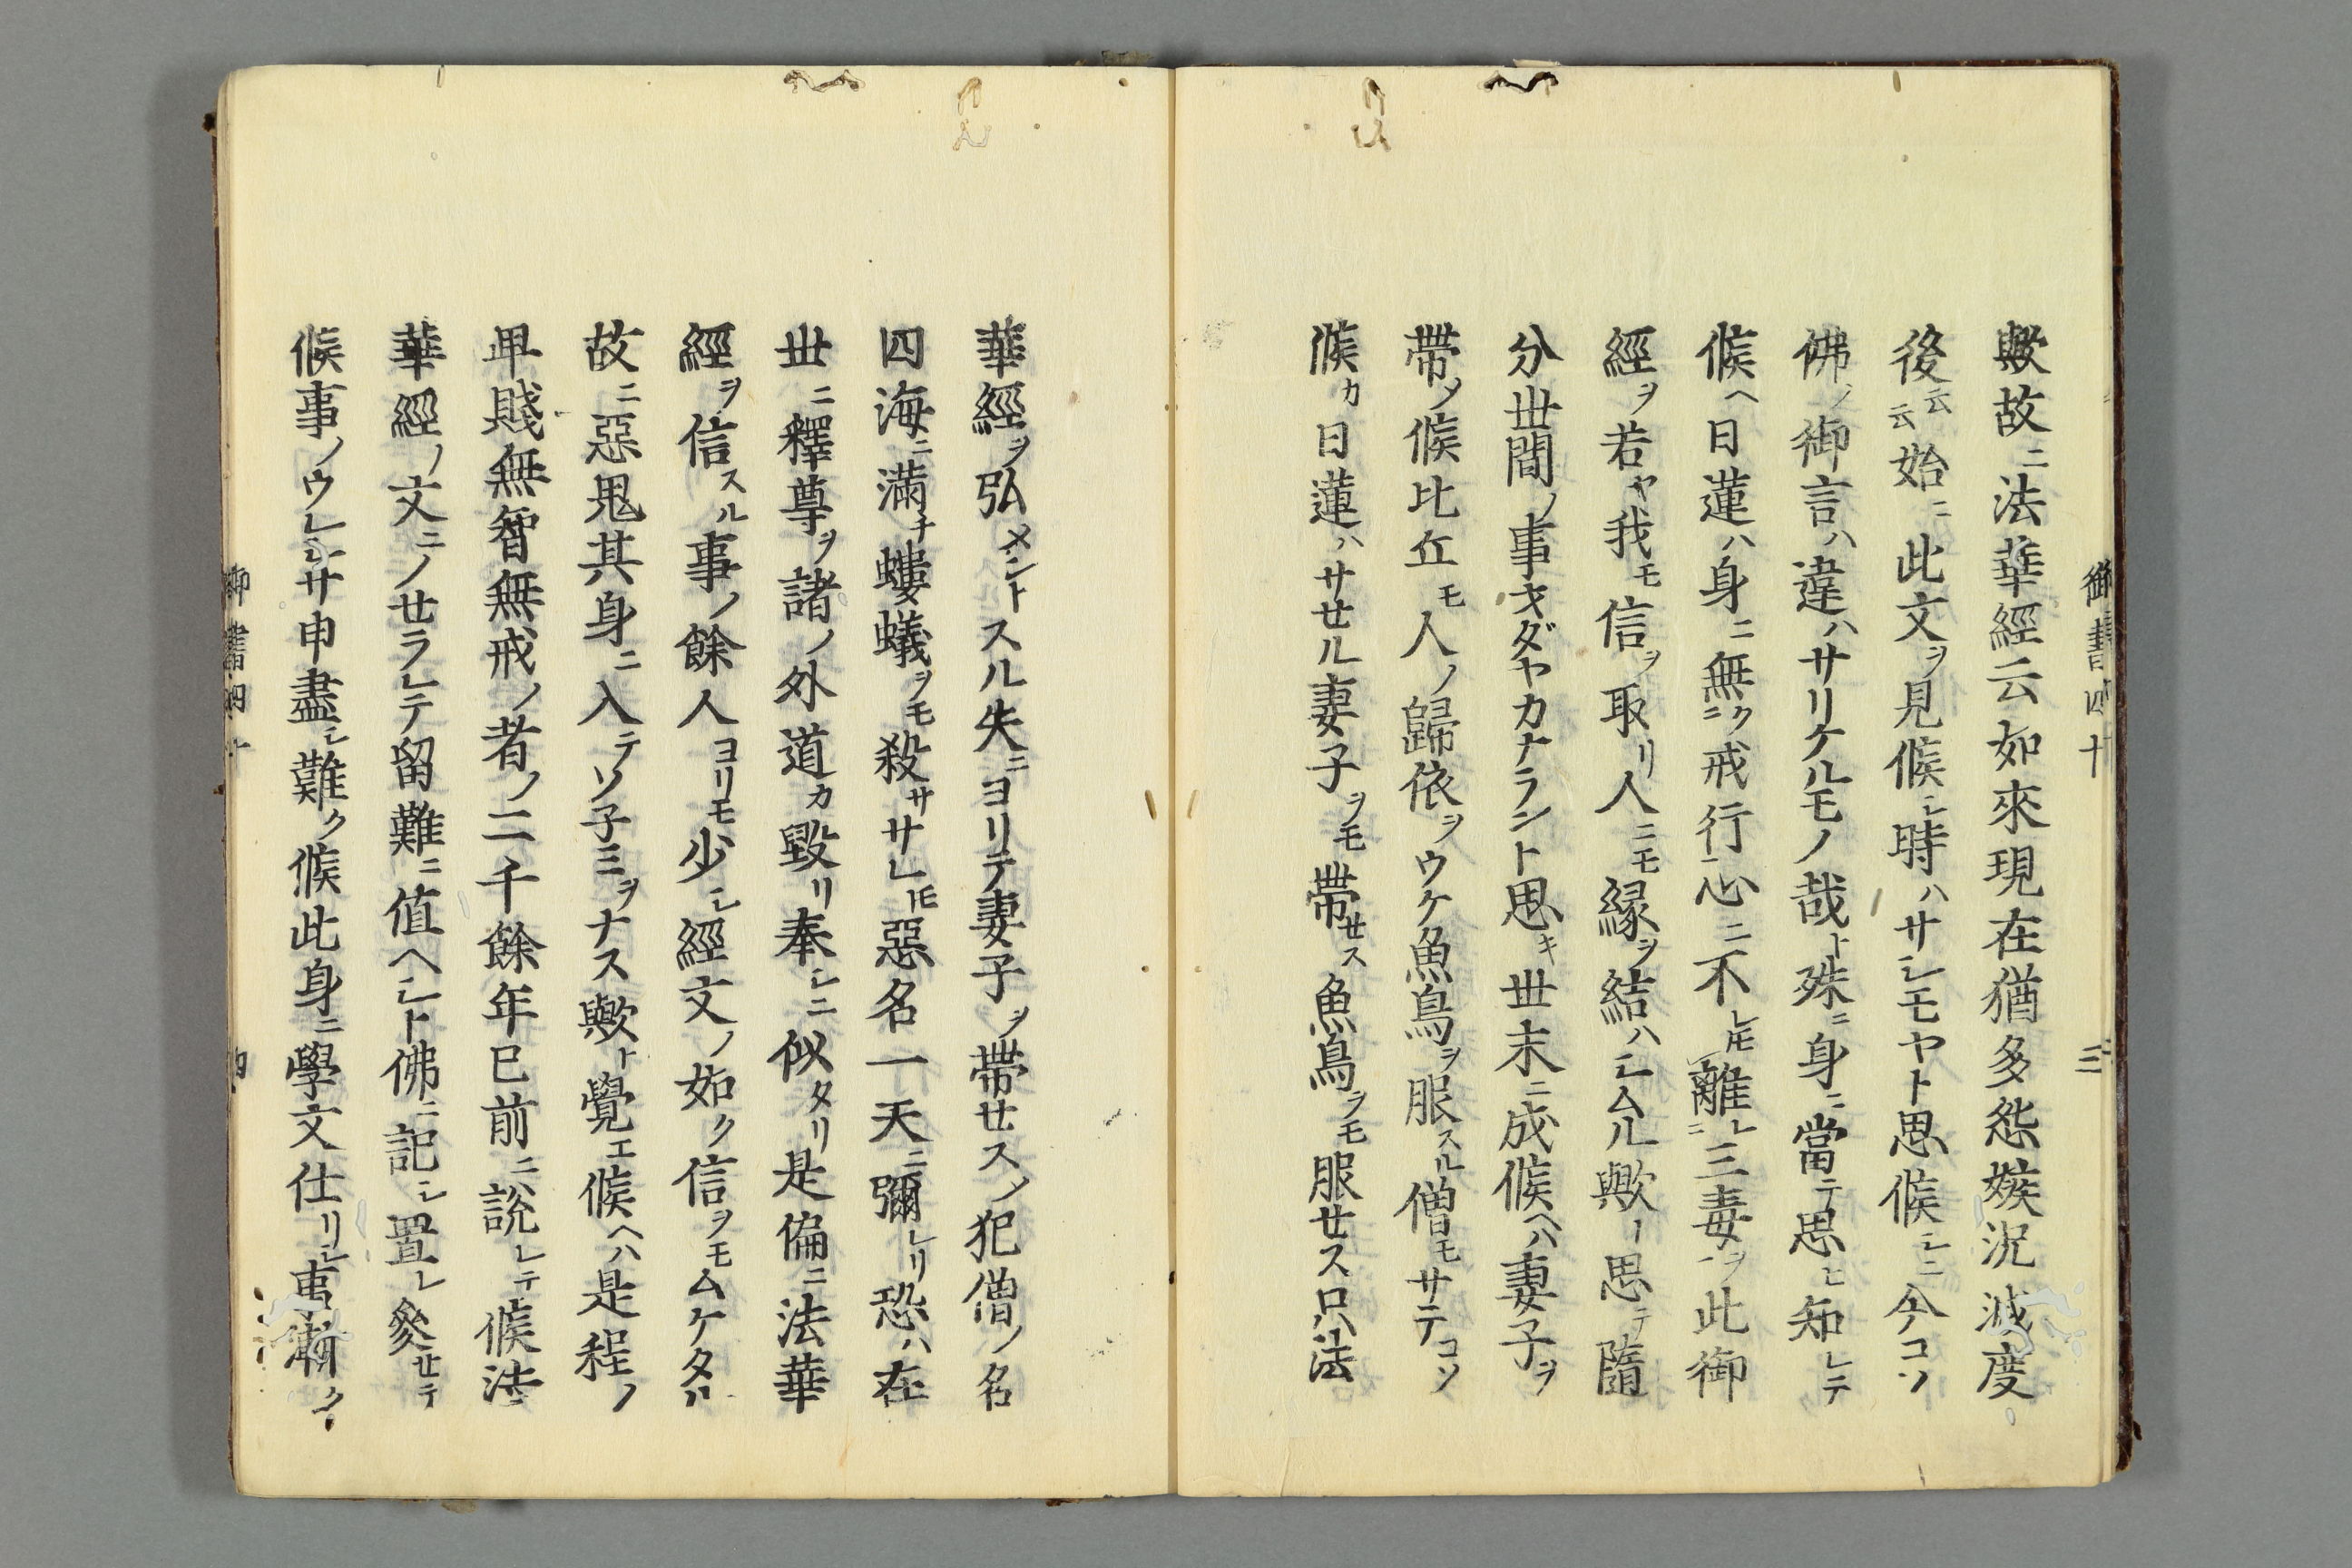 御書四十 三
歟故ニ法華經云如來現在猶多怨嫉況滅度
後云云始ニ此文ヲ見候シ時ハサシモヤト思候シニ今コソ
佛ノ御言ハ違ハサリケルモノ哉ト殊ニ身ニ當テ思ヒ知レテ
候ヘ日蓮ハ身ニ無ク戒行心ニ不レ𪜈離レ三毒ヲ此御
經ヲ若ヤ我モ信ヲ取リ人ニモ縁ヲ結ハシムル歟ト思テ隨
分世間ノ事ヲダヤカナラント思キ世末ニ成候ヘハ妻子ヲ
帶シ候比丘モ人ノ歸依ヲウケ魚鳥ヲ服スル僧モサテコソ
候カ日蓮ハサセル妻子ヲモ帶セス魚鳥ヲモ服セス只法
華經ヲ弘メントスル失ニヨリテ妻子ヲ帶セスノ犯僧ノ名
四海ニ滿チ螻蟻ヲモ殺サレ𪜈惡名一天ニ彌レリ恐ハ在
世ニ釋尊ヲ諸ノ外道カ毀リ奉シニ似タリ是偏ニ法華
經ヲ信スル事ノ餘人ヨリモ少シ經文ノ如ク信ヲモムケタル
故ニ惡鬼其身ニ入テソ子ミヲナス歟ト覺エ候ヘハ是程ノ
卑賤無智無戒ノ者ノ二千餘年已前ニ說レテ候法
華經ノ文ニノセラレテ留難ニ値ヘシト佛ニ記シ置レ參セテ
候事ノウレシサ申盡シ難ク候此身ニ學文仕リシ事漸ク
御書四十 四